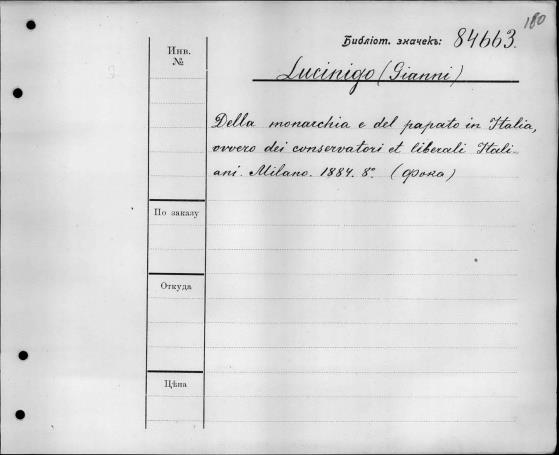 180
Библіот. значекъ: 84663.
Инв.
№
Lucinigo (Gianni)
Della monarchia e del papato in Italia,
ovvero dei conservatori et liberali Itali-
ani. Milano. 1884. 8°. (Фока)
По заказу
Откуда
Цѣна